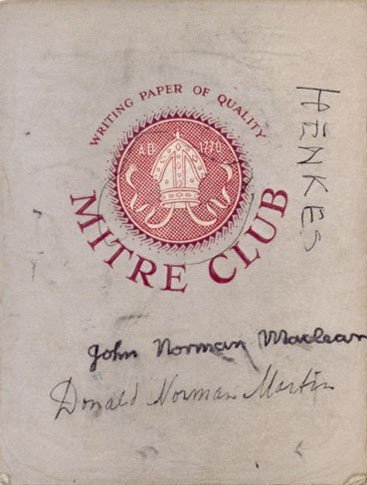 WRITING PAPER OF QUALITY
A.D. 1770
MITRE CLUB
HENKES
John Norman Maclean
Donald Norman Martin